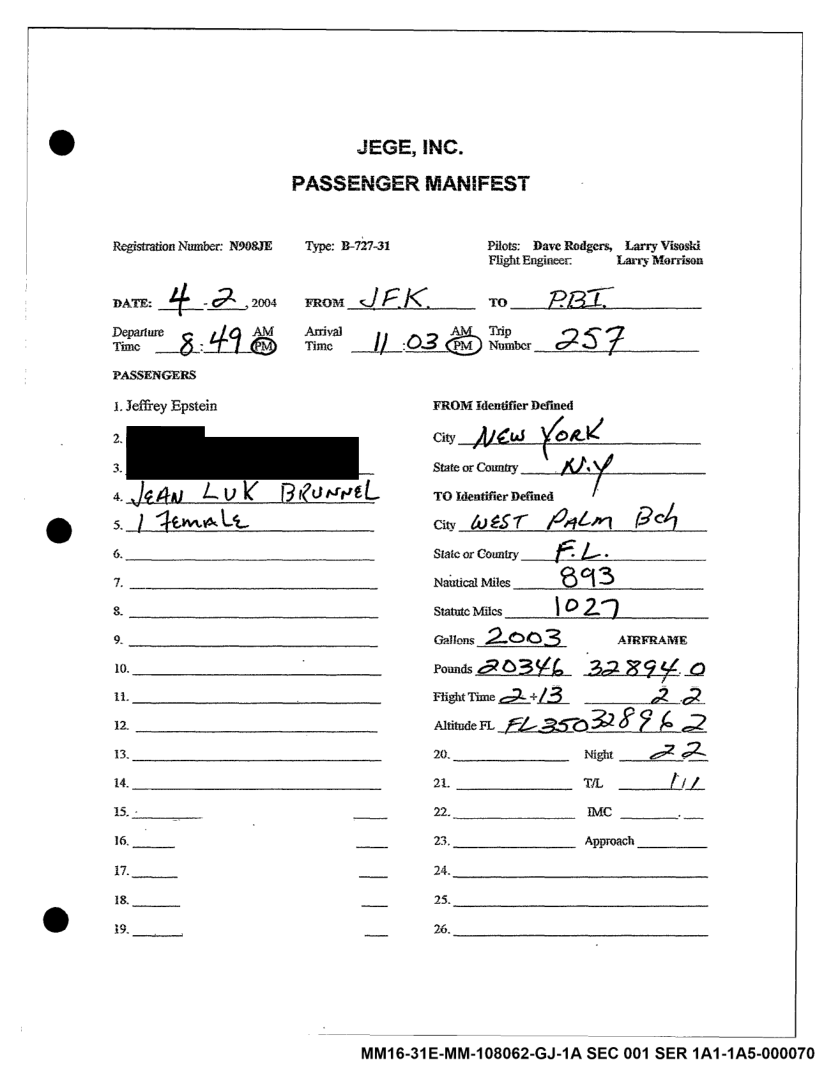 JEGE, INC.
PASSENGER MANIFEST
Registration Number: N908JE Type: B-727-31 Pilots: Dave Rodgers, Larry Visoski
Flight Engineer: Larry Morrison
DATE: 4 - 2, 2004 FROM JFK. TO P.B.I.
Departure Time 8:49 AM PM Arrival Time 11:03 AM PM Trip Number 257
PASSENGERS
1. Jeffrey Epstein FROM Identifier Defined
2. City NEW YORK
3. State or Country N.Y
4. JEAN LUK BRUNNEL TO Identifier Defined
5. 1 FEMALE City WEST PALM Bch
6. State or Country F.L.
7. Nautical Miles 893
8. Statute Miles 1027
9. Gallons 2003 AIRFRAME
10. Pounds 20346 32894.0
11. Flight Time 2+13 2 2
12. Altitude FL FL350 32896 2
13. 20. Night 2 2
14. 21. T/L 1/1
15. 22. IMC
16. 23. Approach
17. 24.
18. 25.
19. 26.
MM16-31E-MM-108062-GJ-1A SEC 001 SER 1A1-1A5-000070